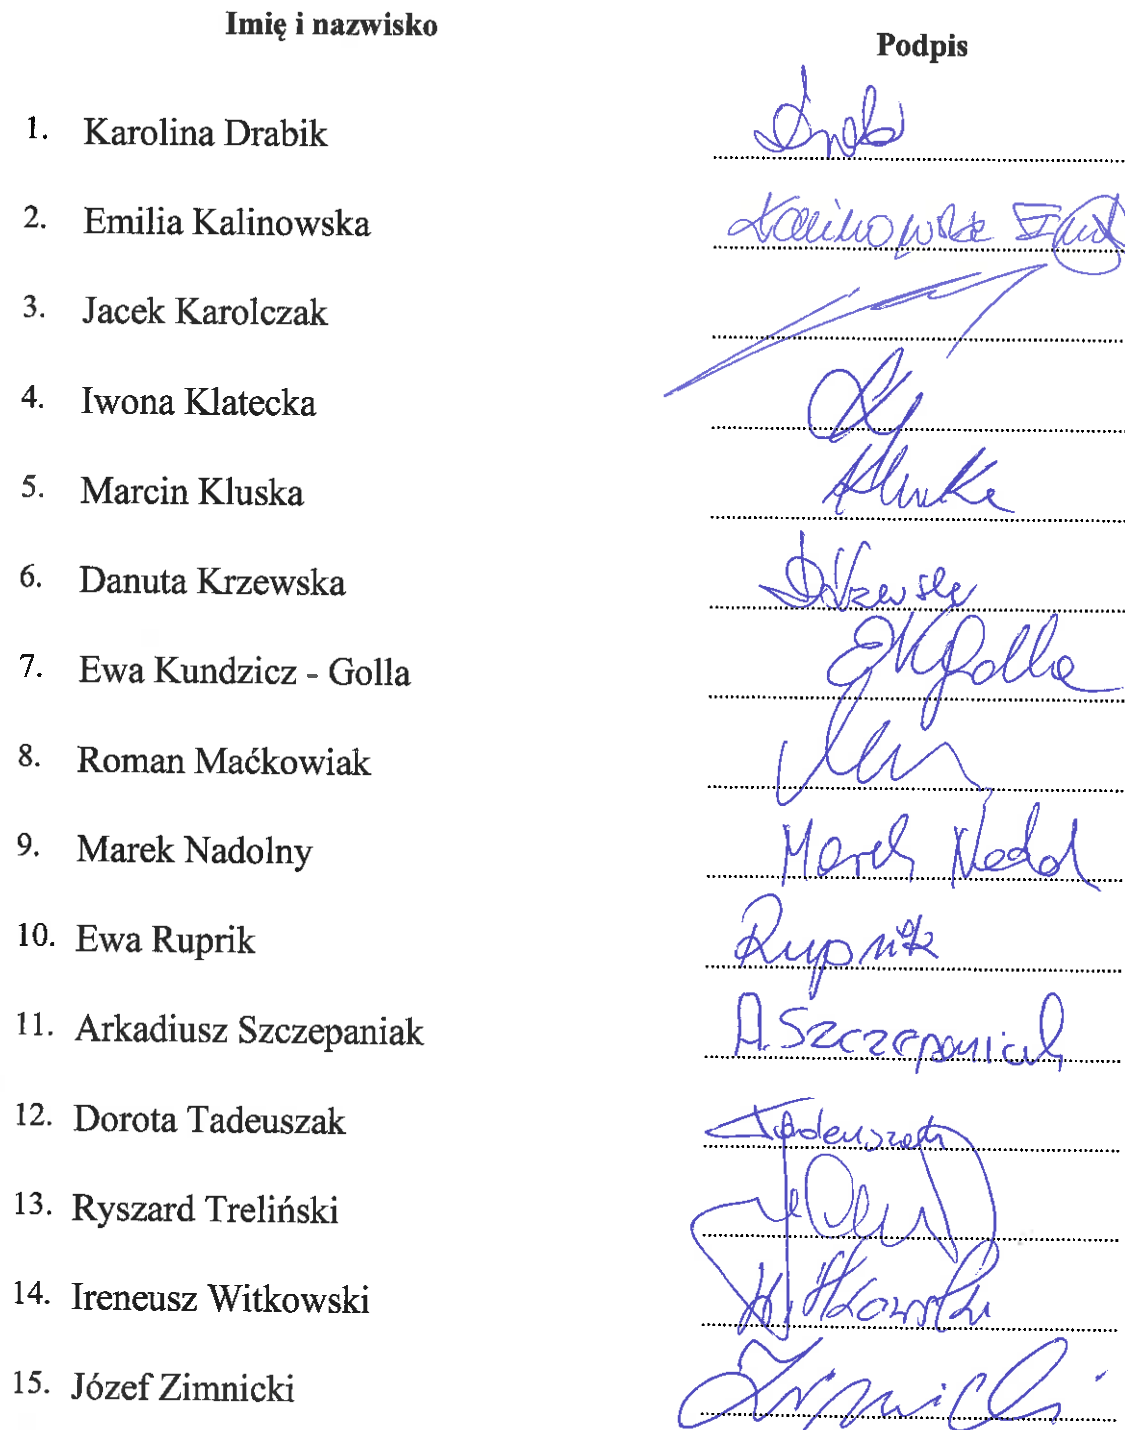 Imię i nazwisko Podpis
1. Karolina Drabik
2. Emilia Kalinowska Kalinowska
3. Jacek Karolczak
4. Iwona Klatecka
5. Marcin Kluska Kluska
6. Danuta Krzewska
7. Ewa Kundzicz - Golla EKGolla
8. Roman Maćkowiak
9. Marek Nadolny Marek Nadol
10. Ewa Ruprik Rupnik
11. Arkadiusz Szczepaniak A. Szczepaniak
12. Dorota Tadeuszak Tadeuszak
13. Ryszard Treliński
14. Ireneusz Witkowski Witkowski
15. Józef Zimnicki Zimnicki